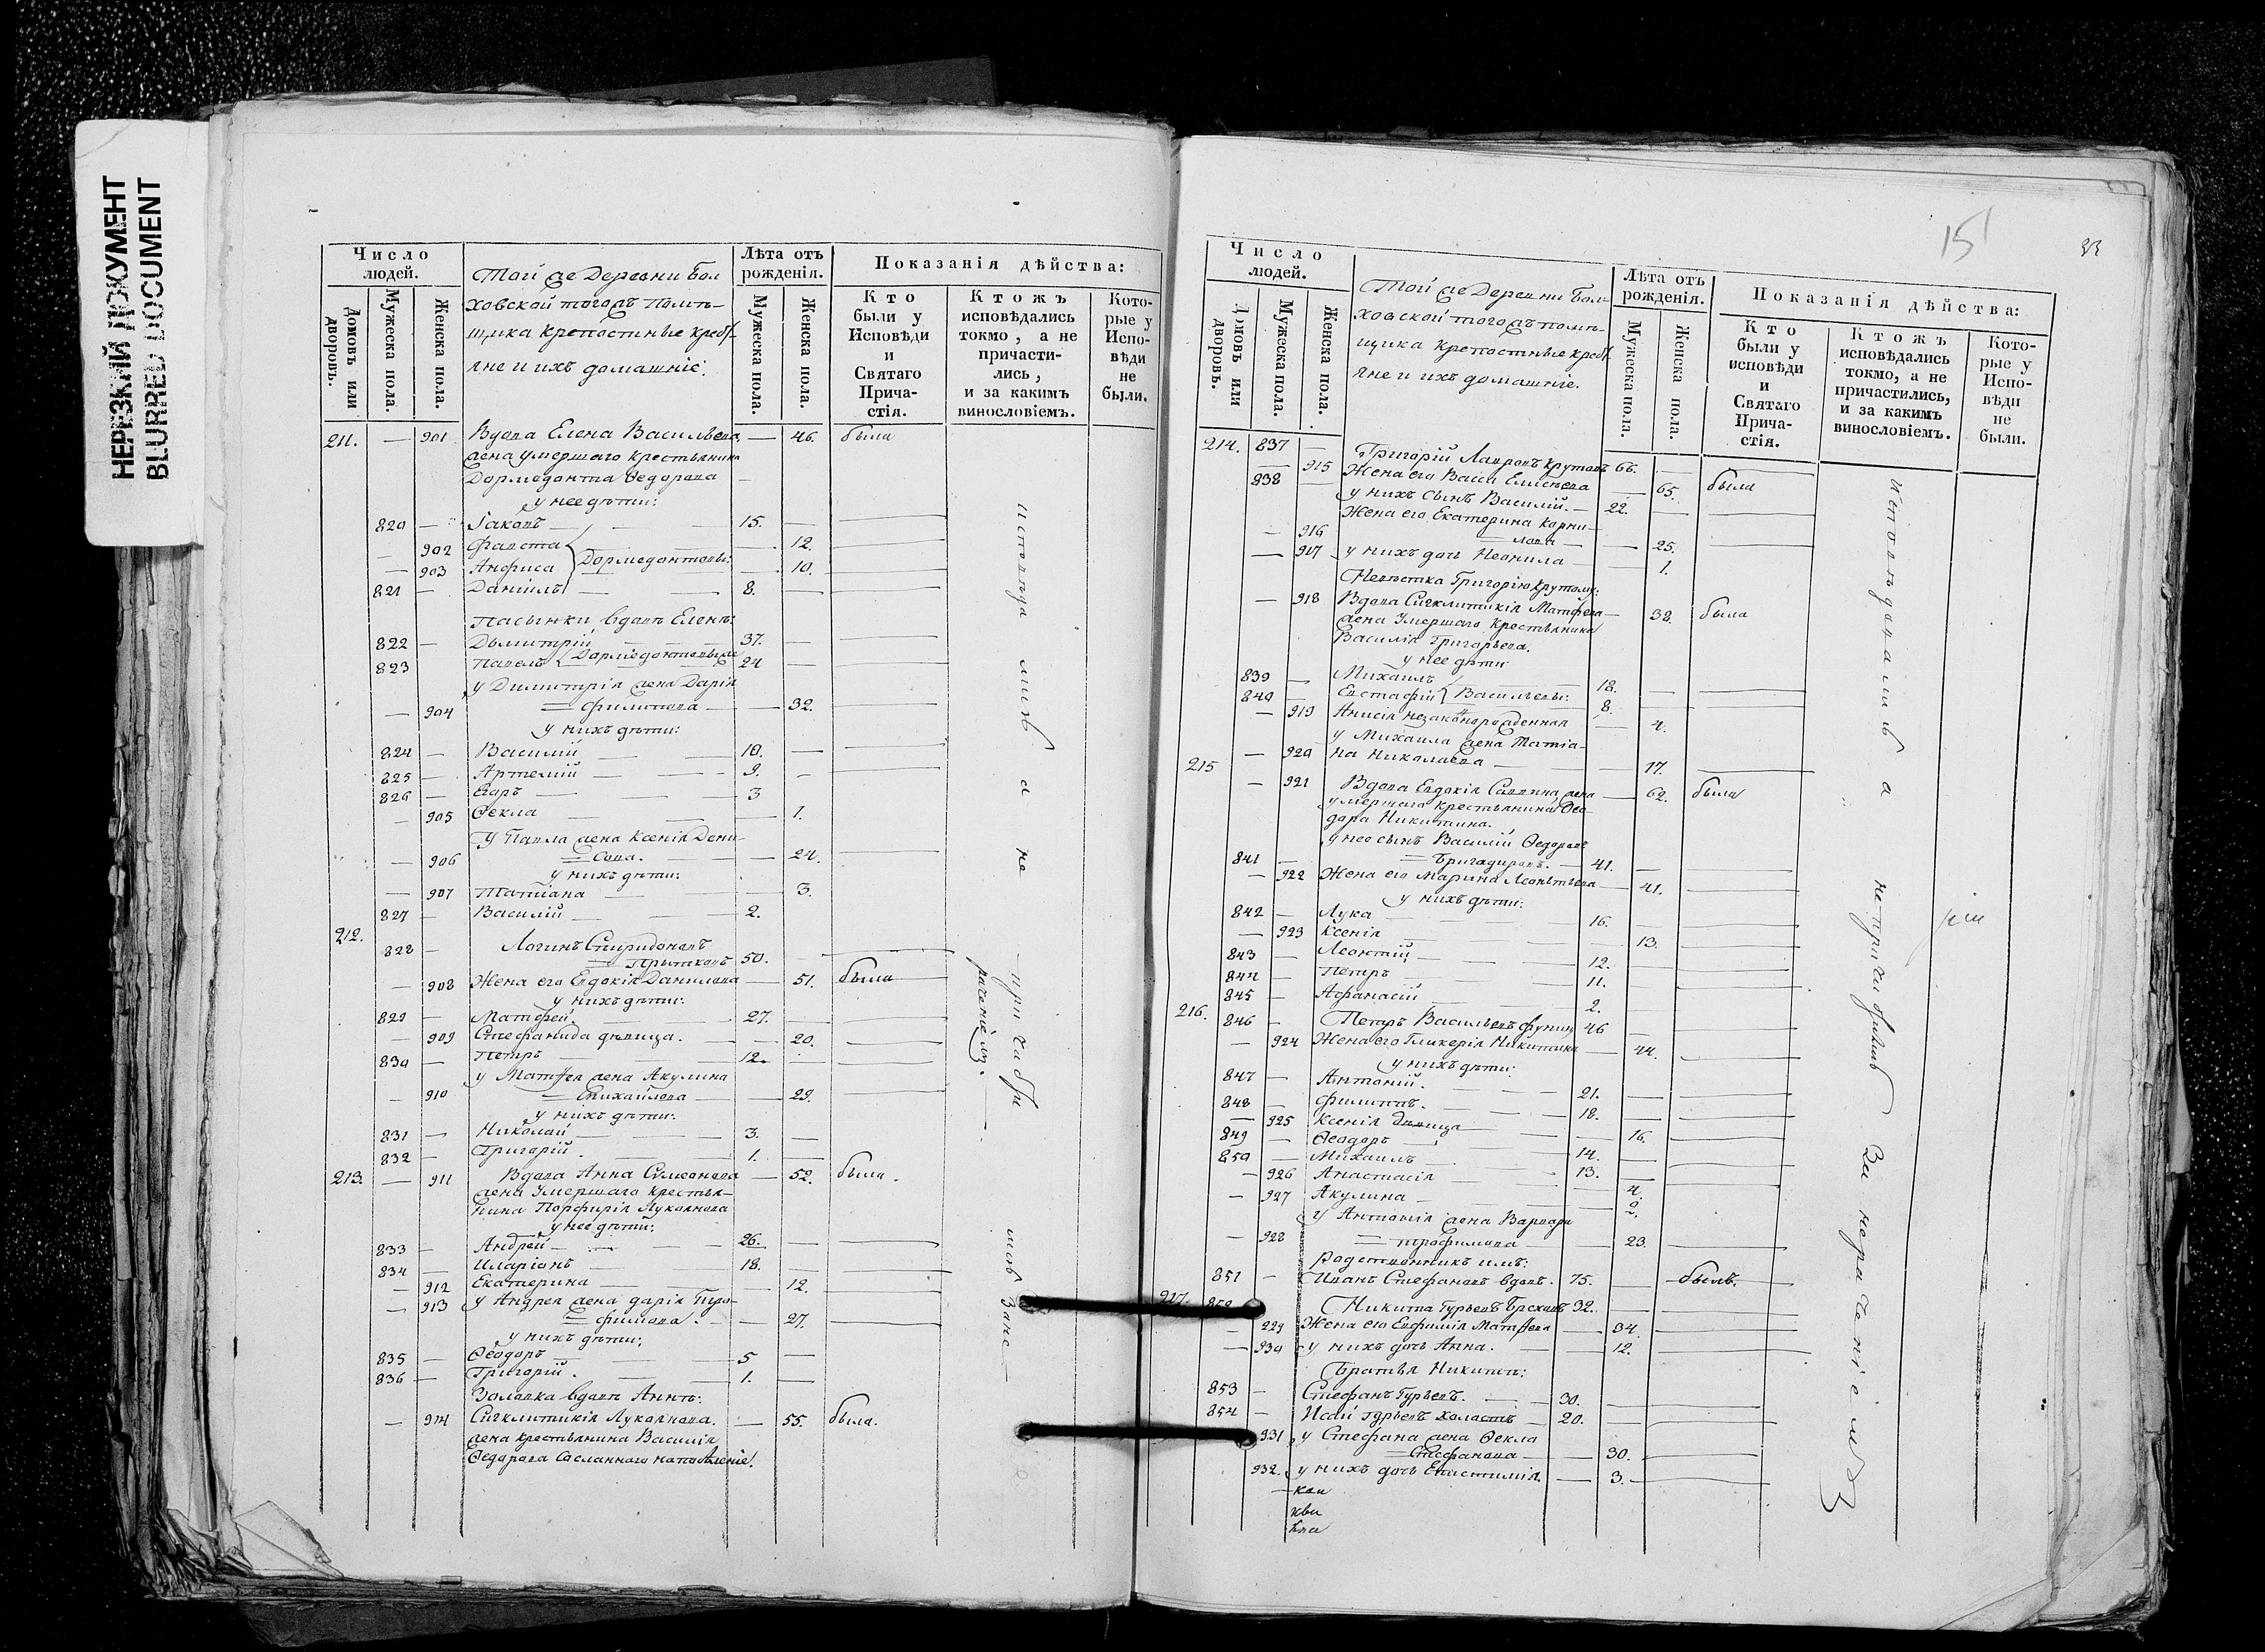 НЕРЕЗКИЙ ДОКУМЕНТ
BLURRED DOCUMENT
Число людей.
Домовъ или дворовъ.
Мужеска пола.
Женска пола.
Той же Деревни Бол
ховской тогожъ Помѣ-
щика крепостные крест-
яне и ихъ домашніе.
Лѣта отъ рожденія.
Мужеска пола.
Женска пола.
Показанія дѣйства:
Кто были у Исповѣди и Святаго Причастія.
Ктожъ исповѣдались токмо, а не причастились, и за какимъ винословіемъ.
Которые у Исповѣди не были.
211. — 901 Вдова Елена Васильева, — 46. была
жена умершаго крестьянина
Дормедонта Ѳедорова —
у нее дѣти:
820 — Іаковъ — 15. —
— 902 Фавста — 12.
— 903 Анфиса Дормедонтовы: — 10.
821 — Даніилъ — 8. —
Пасынки вдовѣ Еленѣ:
822 — Дымитрій 37. —
823 Павелъ Дормедонтовы 24 —
у Димитрія жена Дарія
— 904 = Филипова — 32.
у нихъ дѣти:
824 — Василій — 10. —
825 — Артемій — 9. —
826 — Егоръ — 3
— 905 Ѳекла — 1.
У Павла жена Ксенія Дени
— 906 = сова. — 24.
у нихъ дѣти:
— 907 Татіана — 3.
827 — Василій — 2.
212.
828 — Логинъ Спиридоновъ
= Прытковъ 50. —
— 908 Жена его Евдокія Данилова — 51. была
у нихъ дѣти:
829 — Матфей. — 27. —
— 909 Стефанида дѣвица. — 20.
830 — Петръ — 12. —
у Матѳея жена Акулина
— 910 = Михайлова — 29.
у нихъ дѣти:
831 — Николай — 3. —
832 — Григорій. — 1. —
213. — 911 Вдова Анна Симеонова — 52. была.
жена умершаго крестья-
нина Порфирія Лукьянова
у нее дѣти:
833 — Андрей — 26. —
834 — Иларіонъ — 18. —
— 912 Екатерина — 12.
— 913 у Андрея жена дарія Тро-
= фимова. — 27.
у нихъ дѣти:
835 — Ѳеодоръ — 5 —
836 — Григорій. — 1. —
Золовка вдовѣ Аннѣ:
— 914 Сигклитикія Лукьянова. — 55. была.
жена крестьянина Василія
Ѳедорова сосланнаго на поселеніе.
15
Число людей.
Домовъ или дворовъ.
Мужеска пола.
Женска пола.
Той же Деревни Бол-
ховской тогожъ помѣ-
щика крепостные крест-
яне и ихъ домашніе.
Лѣта отъ рожденія.
Мужеска пола.
Женска пола.
Показанія дѣйства:
Кто были у исповѣди и Святаго Причастія.
Ктожъ исповѣдались токмо, а не причастились, и за какимъ винословіемъ.
Которые у Исповѣди не были.
214. 837 — Григорій Лавровъ Крутовъ 66. —
— 915 Жена его Васса Елисѣева — 65. была
838 — у нихъ сынъ Василій. — 22. —
Жена его Екатерина Корни-
— 916 = лова — 25.
— 917 у нихъ дочь Неонила — 1.
Невѣстка Григорію Крутому:
— 918 Вдова Сигклитикія Матфеева — 38. была
жена умершаго крестьянина
Василія Григорьева.
у нее дѣти
839 — Михаилъ — 18. —
840 — Евстафій Васильевы: 8. —
— 919 Анисія незаконорожденная — 4.
у Михаила жена Татіа-
— 920 на Николаева — 17.
215
— 921 Вдова Евдокія Саввина жена — 62. была
умершаго крестьянина Ѳео-
дора Никитина.
у нее сынъ Василій Ѳедоровъ
841 — = Бригадировъ. — 41. —
— 922 Жена его Марина Леонтьева — 41.
у нихъ дѣти:
842 — Лука — 16. —
— 923 Ксенія — 13.
843 — Леонтій — 12. —
844 — Петръ — 11. —
845 — Афанасій — 2. —
216. 846 — Петръ Васильевъ 46 —
— 924 Жена его Гликерія Никитина — 44.
у нихъ дѣти:
847 — Антоній. — 21. —
848 — Филиппъ. — 18. —
— 925 Ксенія дѣвица — 16.
849 — Ѳеодоръ — 14. —
850 — Михаилъ — 13. —
— 926 Анастасія — 4.
— 927 Акулина — 2.
У Антонія жена Варвара
— 928 = Трофимова — 23.
Родственникъ имъ:
851 — Иванъ Стефановъ вдовъ. 75. — былъ.
217. 852 Никита Гурьевъ 32. —
— 929 Жена его Евфимія Матѳеева — 34.
— 930 у нихъ дочь Анна. — 12.
Братья Никитѣ:
853 — Стефанъ Гурьевъ. — 30. —
854 — Исай Гурьевъ холостъ — 20. —
931 у Стефана жена Ѳекла
= Стефанова — 30.
932. у нихъ дочь Епистимія. — 3.
Исповѣдовались а не причастились за нераченіемъ